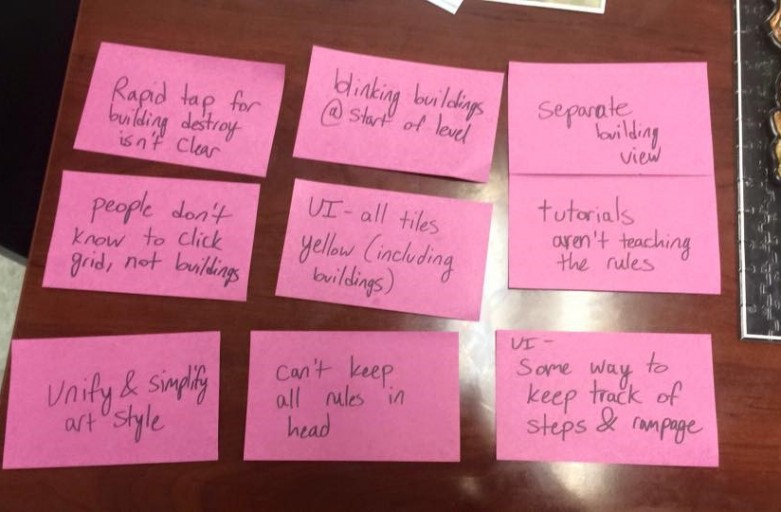 Rapid tap for
building destroy
isn't clear
blinking buildings
@ start of level
separate
building
view
people don't
know to click
grid, not buildings
UI - all tiles
yellow (including
buildings)
tutorials
aren't teaching
the rules
Unify & simplify
art style
can't keep
all rules in
head
UI -
Some way to
keep track of
steps & rampage